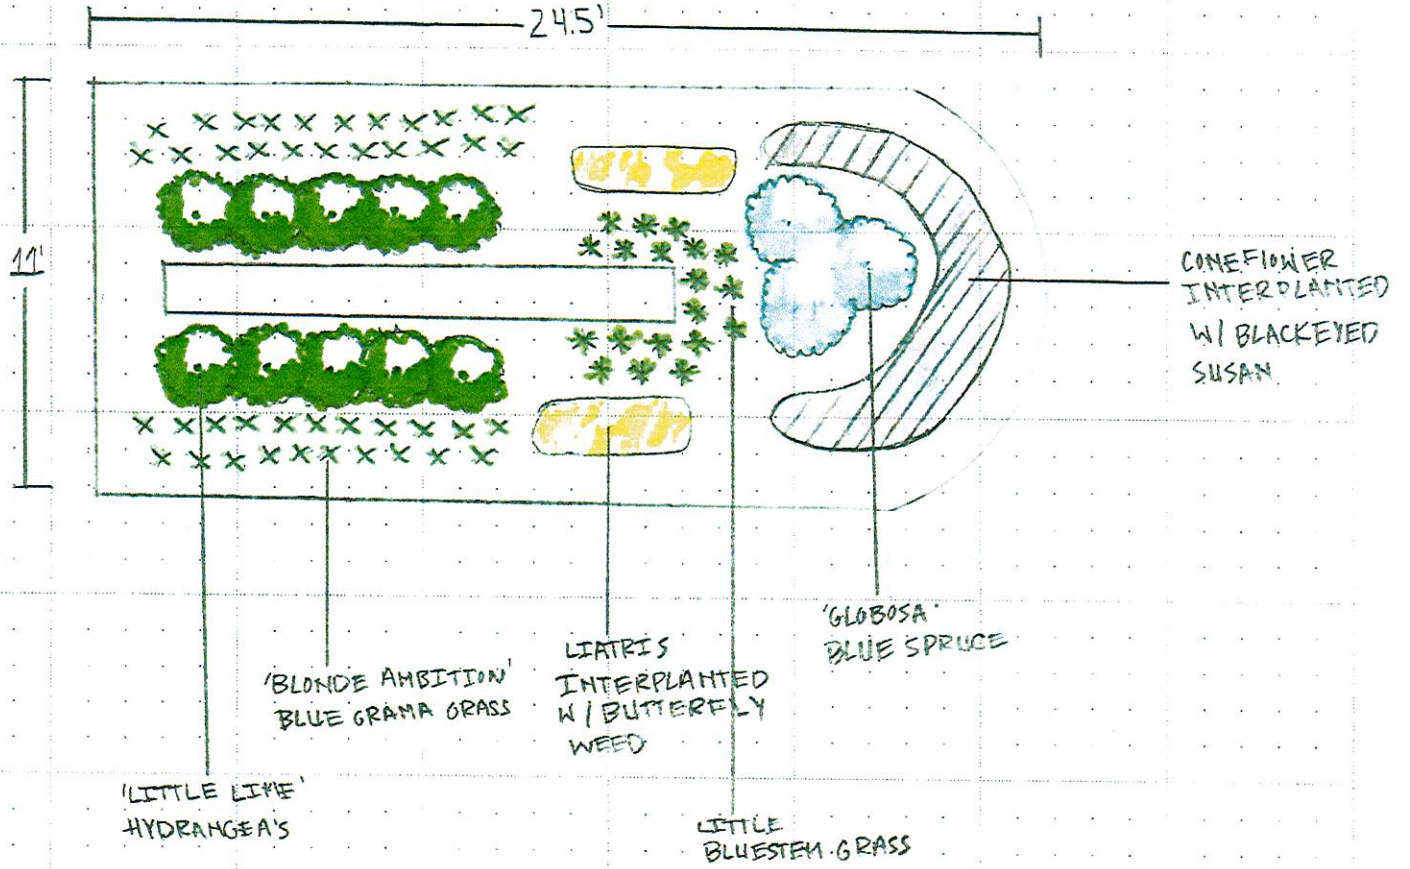 24.5'
11'
CONEFLOWER
INTERPLANTED
W/ BLACKEYED
SUSAN
'GLOBOSA'
BLUE SPRUCE
LIATRIS
INTERPLANTED
W/ BUTTERFLY
WEED
'BLONDE AMBITION'
BLUE GRAMA GRASS
'LITTLE LIME'
HYDRANGEA'S
LITTLE
BLUESTEM GRASS